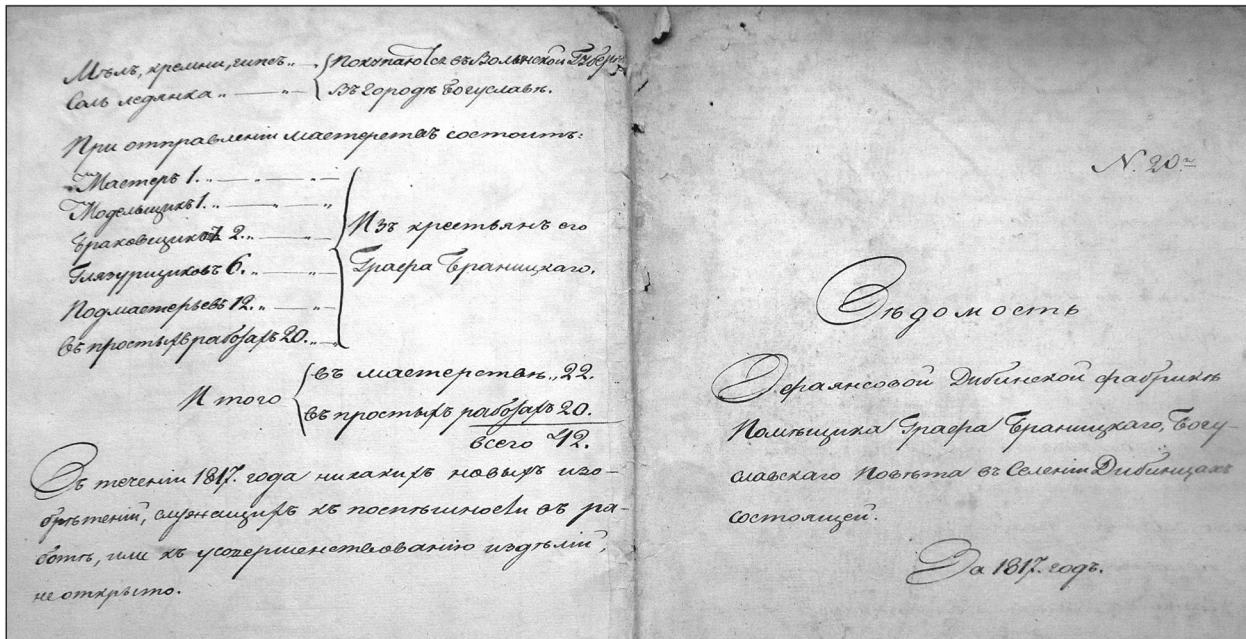 Мѣлъ, кремни, гипсъ „ — { Покупаются въ Волынской Губерн
Соль ледянка „ — „ { Въ городѣ Богуславѣ.
При отправленіи мастерства состоитъ:
Мастеръ 1. „ — „ — „
Модельщикъ 1. „ — „ — „
Браковщиковъ 2. „ — „
Глазурщиковъ 6. „ — „
Подмастерьевъ 12. „ — „
Въ простыхъ работахъ 20. „ — „
Изъ крестьянъ его
Графа Браницкаго.
Итого { въ мастерствѣ „ 22.
въ простыхъ работахъ 20.
всего 42.
Въ теченіи 1817. года никакихъ новыхъ изо-
брѣтеній, служащихъ къ поспѣшности въ ра-
ботѣ, или къ усовершенствованію издѣлій,
не открыто.
N. 20.
Вѣдомость
О фаянсовой Дибинской фабрикѣ
Помѣщика Графа Браницкаго, Богу-
славскаго Повѣта въ Селеніи Дибинцахъ
состоящей.
За 1817. годъ.